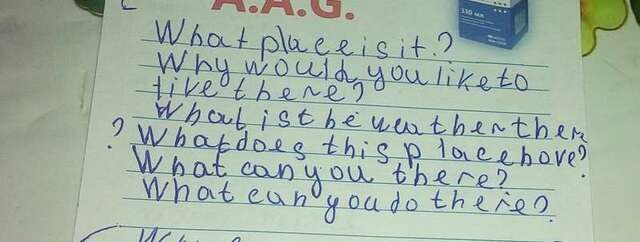 A.A.G.
330 мл
What place is it?
Why would you like to
live there?
What is the weather ther
? What does this place hove?
What can you there?
What can you do there?